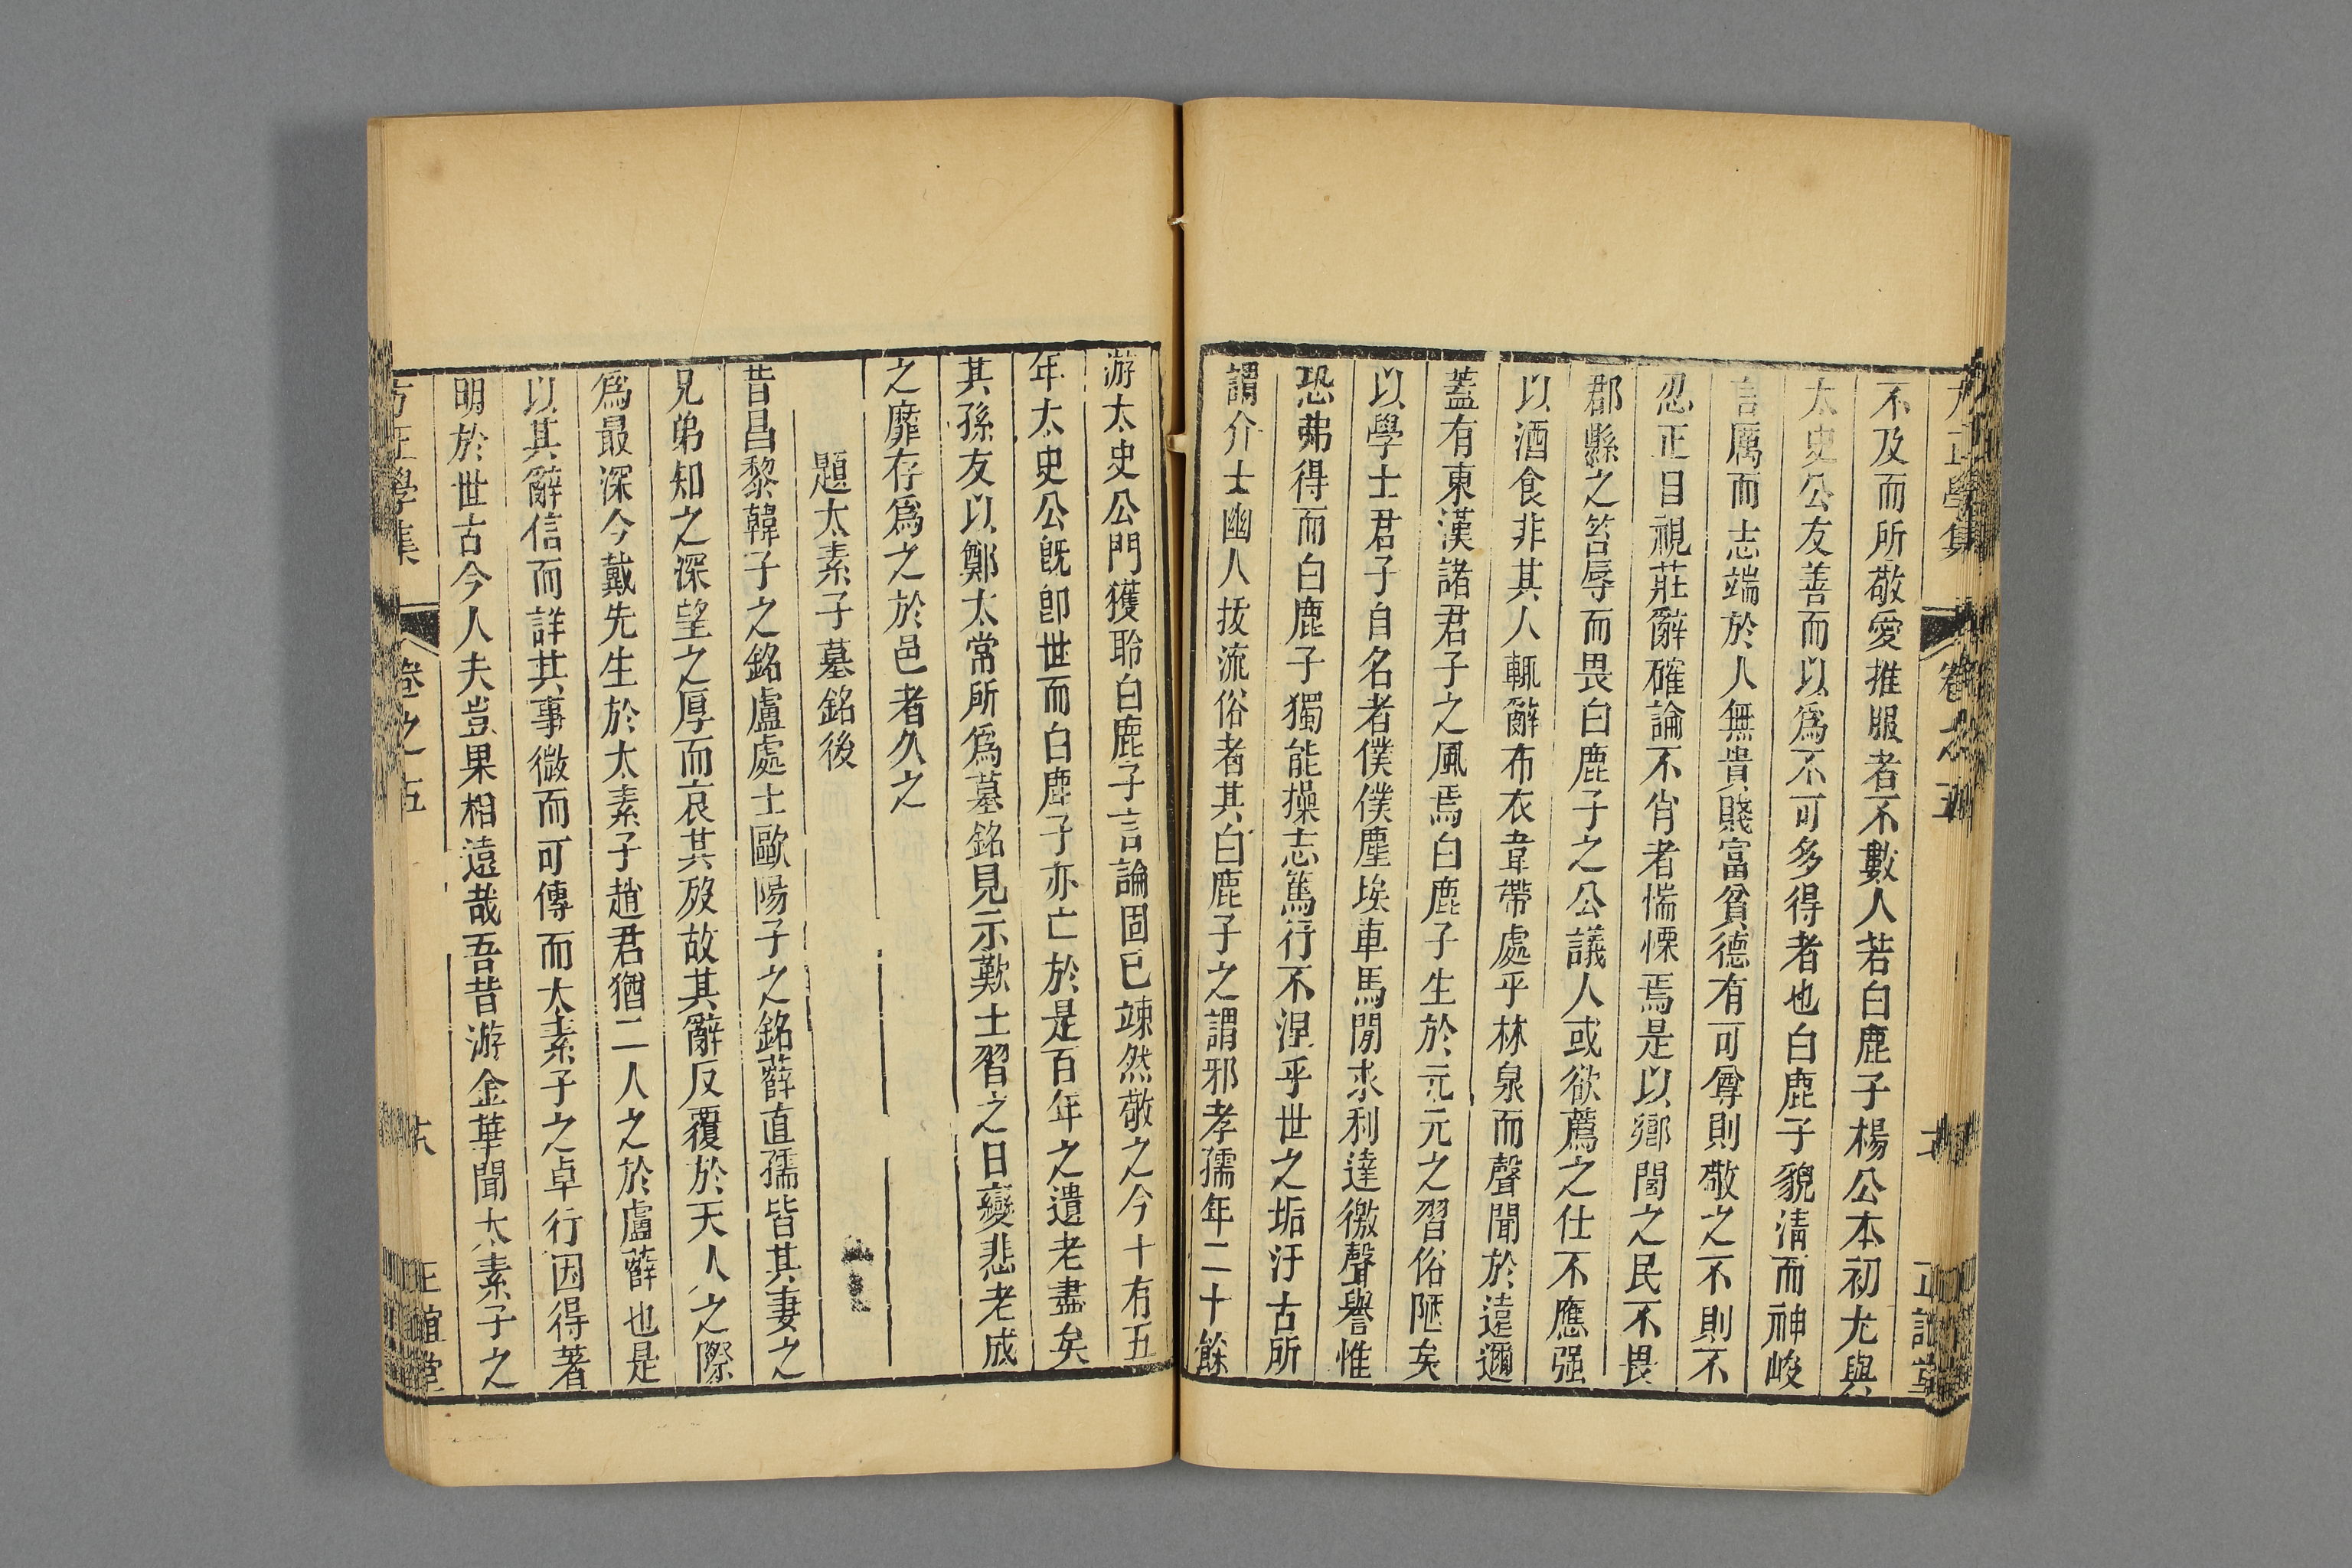 不及而所敬愛推服者不數人若白鹿子楊公本初尤與
太史公友善而以爲不可多得者也白鹿子貌淸而神峻
言厲而志端於人無貴賤富貧德有可尊則敬之不則不
忍正目視莊辭確論不肖者惴慄焉是以鄉閭之民不畏
郡縣之笞辱而畏白鹿子之公議人或欲薦之仕不應强
以酒食非其人輒辭布衣韋帶處乎林泉而聲聞於遠邇
蓋有東漢諸君子之風焉白鹿子生於元元之習俗陋矣
以學士君子自名者僕僕塵埃車馬閒求利達徼聲譽惟
恐弗得而白鹿子獨能操志篤行不涅乎世之垢汙古所
謂介士幽人拔流俗者其白鹿子之謂邪孝孺年二十餘
游太史公門獲聆白鹿子言論固已竦然敬之今十有五
年太史公旣卽世而白鹿子亦亡於是百年之遺老盡矣
其孫友以鄭太常所爲墓銘見示歎士習之日變悲老成
之靡存爲之於邑者久之
題太素子墓銘後
昔昌黎韓子之銘盧處士歐陽子之銘薛直孺皆其妻之
兄弟知之深望之厚而哀其歿故其辭反覆於天人之際
爲最深今戴先生於太素子趙君猶二人之於盧薛也是
以其辭信而詳其事微而可傳而太素子之卓行因得著
明於世古今人夫豈果相遠哉吾昔游金華聞太素子之
方正學集 卷之五 正誼堂